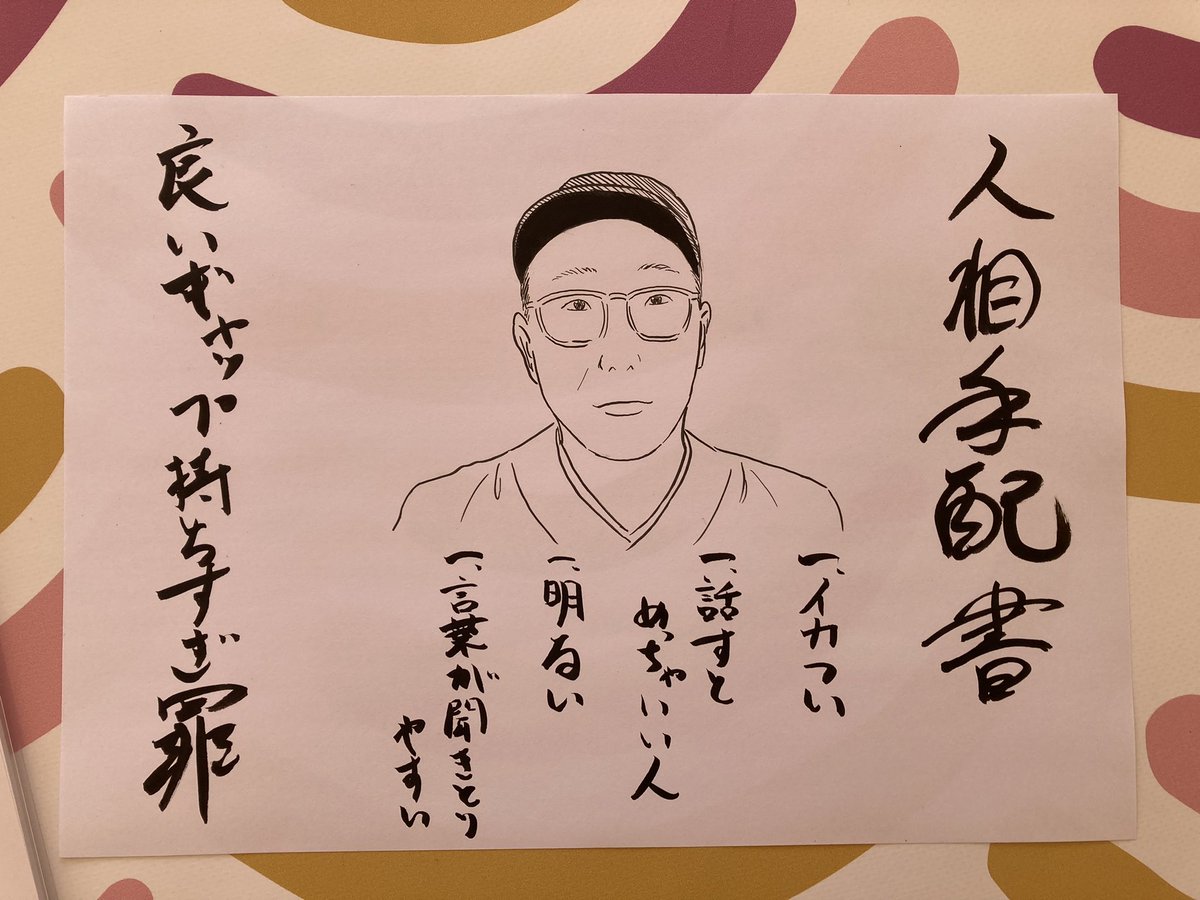 人相手配書
一、イカつい
一、話すと
めっちゃいい人
一、明るい
一、言葉が聞きとり
やすい
良いギャップ持ちすぎ罪